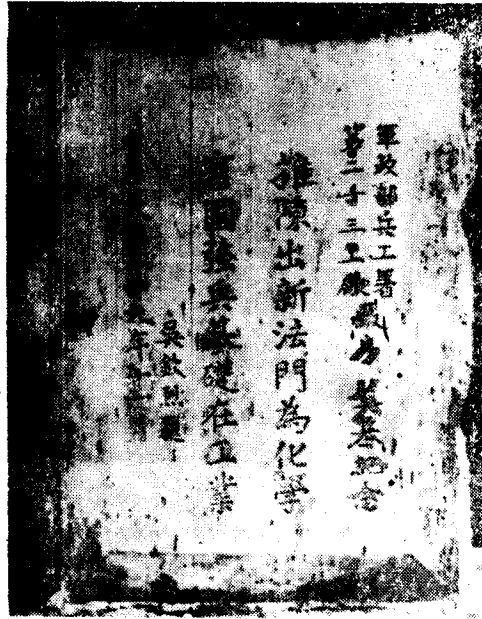 軍政部兵工署
第二十三工廠
奠基紀念
推陳出新法門為化學
富國強兵基礎在工業
吳欽烈題
年